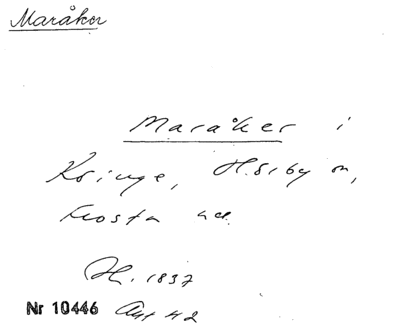 Maråker
Maråker i
Kringe, H.srby sn,
Frosta hd.
H. 1837
Nr 10446 Akt 42